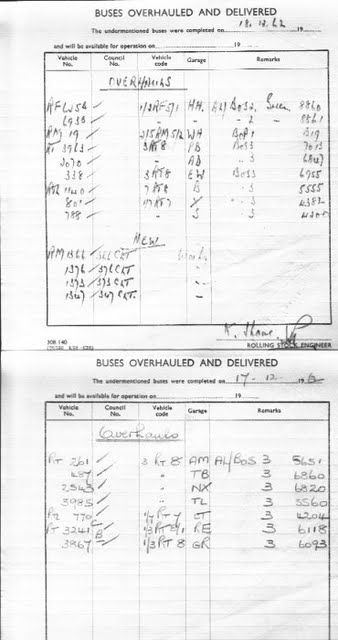 BUSES OVERHAULED AND DELIVERED
The undermentioned buses were completed on 18.12.62 19
and will be available for operation on 19
Vehicle No. Council No. Vehicle code Garage Remarks
OVERHAULS
8860
8861
RM 19 2/5RM5/2 WH BoP1 819
RT 3963 3RT8 PB BoS3 7013
3070 " AD " 3 6847
338 3RT8 EW BoS3 6955
1140 7RT8 B " 3 5555
801 " 3 4382
788 S " 3
NEW
RM 1366 366CLT Works
1376 376CLT "
1373 373CLT "
1347 347CLT. "
308 140
ROLLING STOCK ENGINEER
BUSES OVERHAULED AND DELIVERED
The undermentioned buses were completed on 17-12- 19
and will be available for operation on 19
Vehicle No. Council No. Vehicle code Garage Remarks
Overhauls
RT 261 3 RT 8 AM AL/BOS 3 5651
487 " TB 3 6860
2543 " NX 3 6820
3985 " TL 3 5560
770 1/7 RT 7 CT 3 4204
RT 3241 RE 3 6118
3867 1/3 RT 8 GR 3 6093